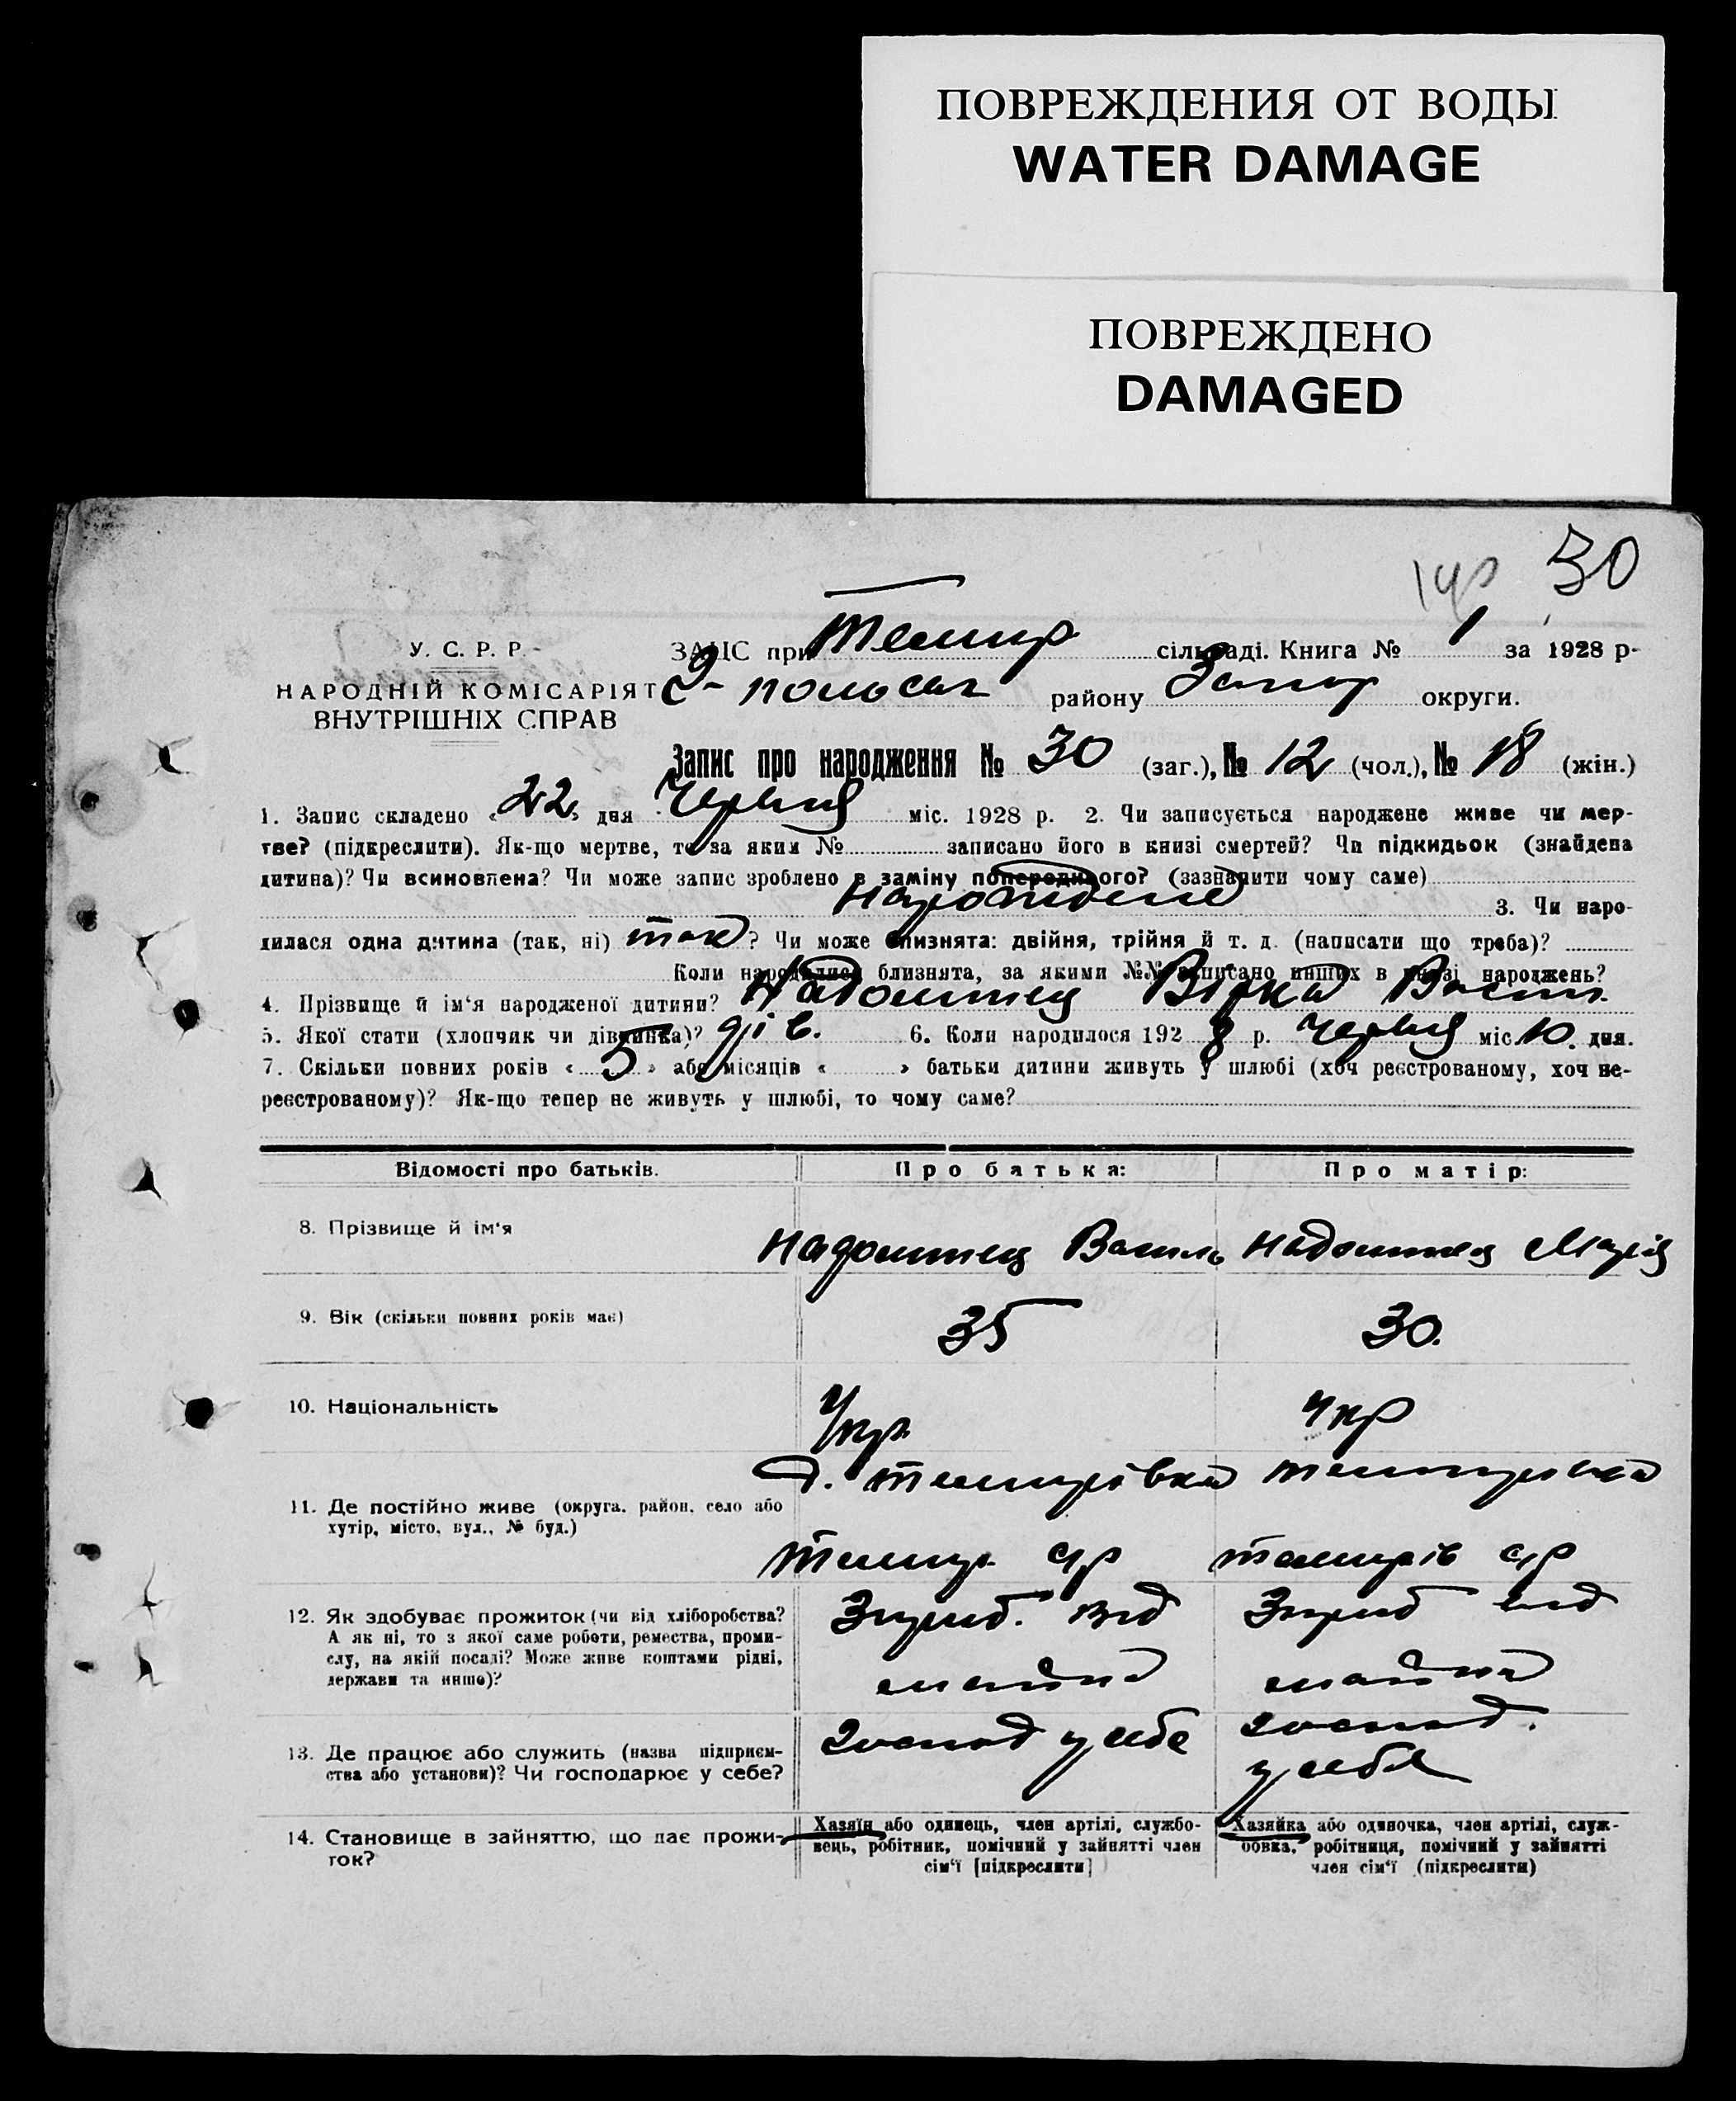 ПОВРЕЖДЕНИЯ ОТ ВОДЫ
WATER DAMAGE
ПОВРЕЖДЕНО
DAMAGED
30
У. С. Р. Р.
НАРОДНІЙ КОМІСАРІЯТ
ВНУТРІШНІХ СПРАВ
ЗАГС при Темир сільраді. Книга № 1 за 1928 р.
районy Запор округи.
Запис про народження № 30 (заг.), № 12 (чол.), № 18 (жін.)
1. Запис складено « 22 » дня Червня міс. 1928 р. 2. Чи записується народжене живе чи мер-
тве? (підкреслити). Як-що мертве, то за яким № записано його в книзі смертей? Чи підкидьок (знайдена
дитина)? Чи всиновлена? Чи може запис зроблено в заміну попереднього? (зазначити чому саме)
3. Чи наро-
дилася одна дитина (так, ні) так ? Чи може близнята: двійня, трійня й т. д. (написати що треба)?
Коли народилися близнята, за якими №№ записано инших в книзі народжень?
4. Прізвище й ім‘я народженої дитини?
5. Якої стати (хлопчик чи дівчинка)? дів. 6. Коли народилося 192 8 р. Червня міс. 10. дня.
7. Скільки повних років « 5 » або місяців « » батьки дитини живуть у шлюбі (хоч реєстрованому, хоч не-
реєстрованому)? Як-що тепер не живуть у шлюбі, то чому саме?
Відомості про батьків. Про батька: Про матір:
8. Прізвище й ім‘я Василь Марія
9. Вік (скільки повних років має) 35 30.
10. Національність Укр. Укр
11. Де постійно живе (округа, район, село або
хутір, місто, вул., № буд.)
с. Темирівка Темирівка
Темир. с/р Темирів с/р
12. Як здобуває прожиток (чи від хліборобства?
А як ні, то з якої саме роботи, ремества, проми-
слу, на якій посаді? Може живе коштами рідні,
держави та инше)?
від від
13. Де працює або служить (назва підприєм-
ства або установи)? Чи господарює у себе?
господ у себе господ.
у себе
14. Становище в зайняттю, що дає прожи-
ток?
Хазяїн або одинець, член артілі, службо-
вець, робітник, помічний у зайнятті член
сім‘ї [підкреслити]
Хазяйка або одиночка, член артілі, служ-
бовка, робітниця, помічний у зайнятті
член сім‘ї (підкреслити)